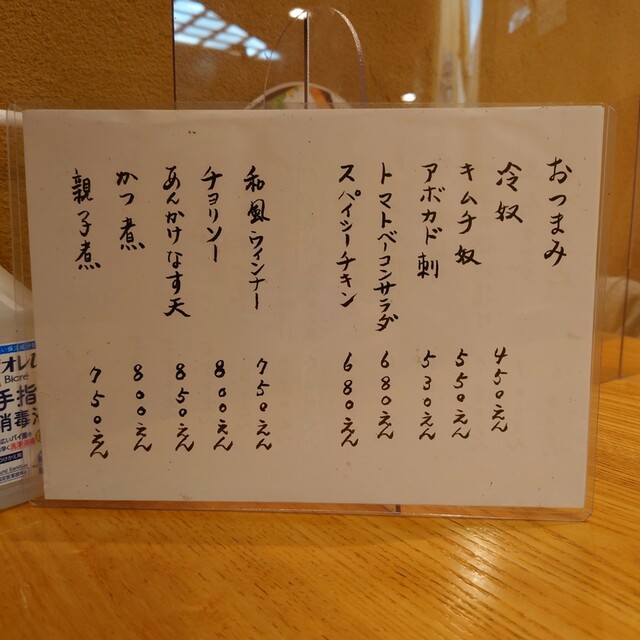 おつまみ
冷奴 450えん
キムチ奴 550えん
アボカド刺 530えん
トマトベーコンサラダ 680えん
スパイシーチキン 680えん
和風ウィンナー 750えん
チョリソー 800えん
あんかけなす天 850えん
かつ煮 800えん
親子煮 750えん
Biore
手指
消毒